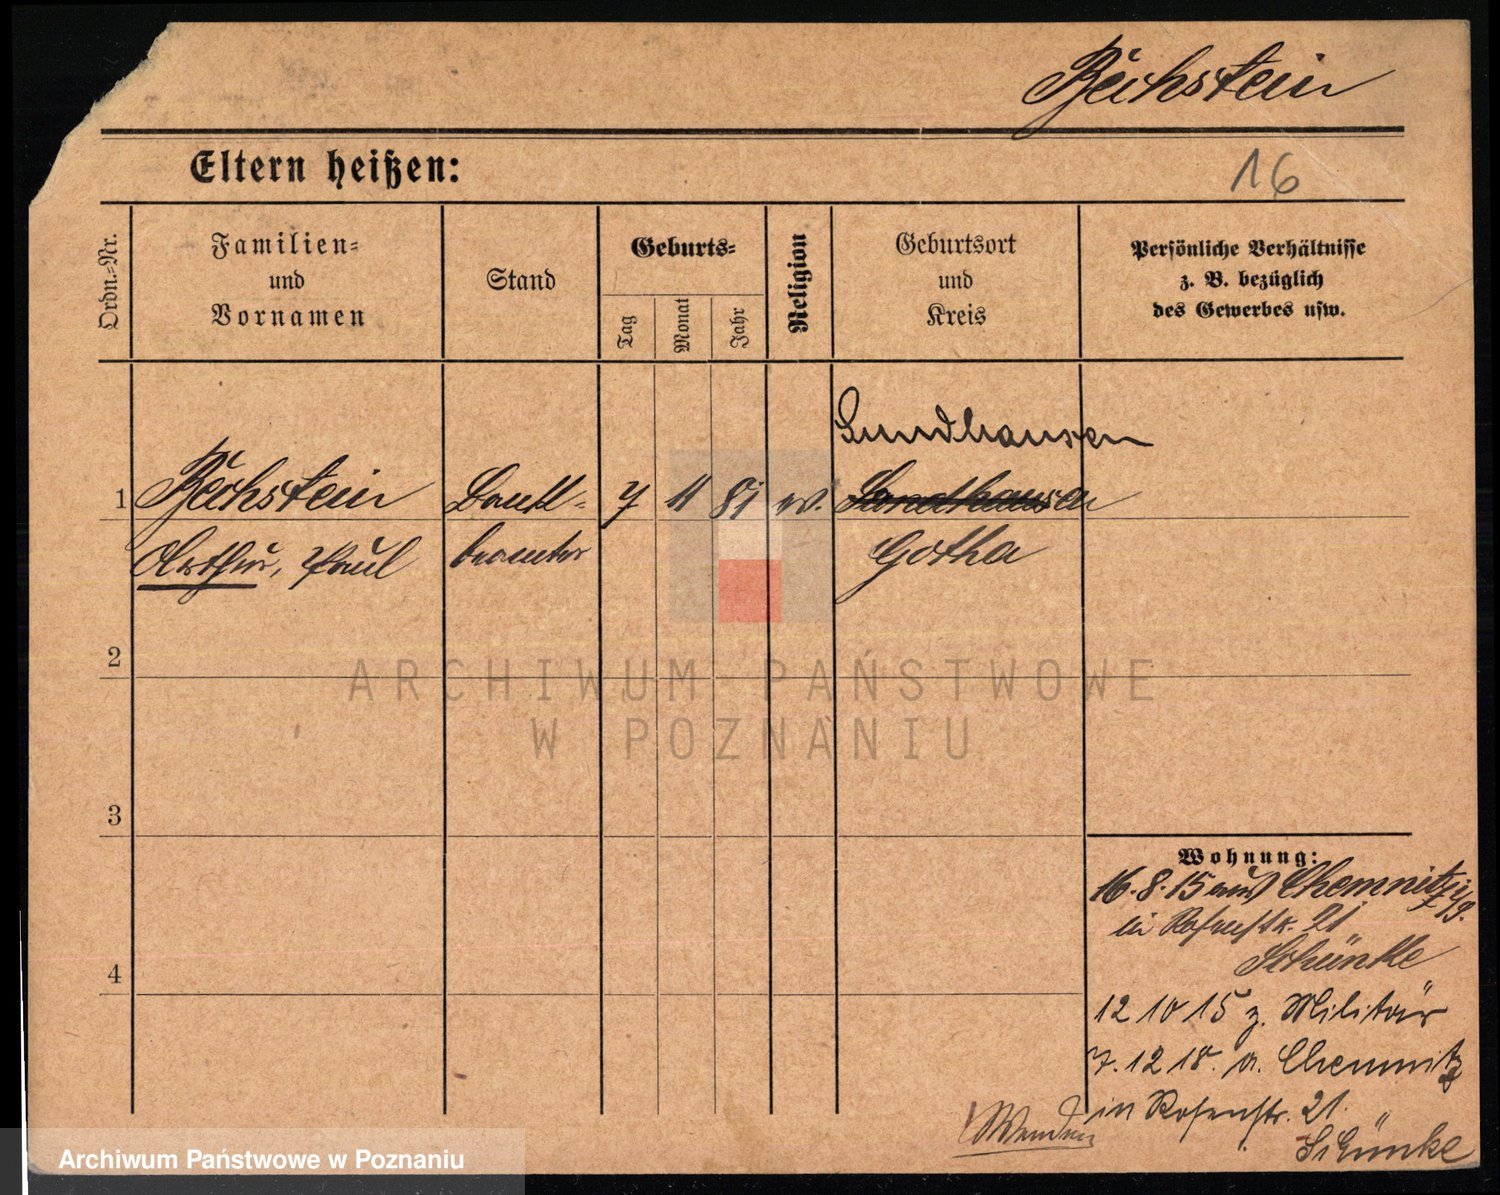 Bechstein
Eltern heißen:
16
Ordn.=Nr.
Familien=
und
Vornamen
Stand
Geburts=
Tag
Monat
Jahr
Religion
Geburtsort
und
Kreis
Persönliche Verhältnisse
z. B. bezüglich
des Gewerbes usw.
Sundhausen
1 Bechstein Bank= 7 11 81 ev. Sundhausen
Arthur, Paul beamter Gotha
2
3
4
ARCHIWUM PAŃSTWOWE
W POZNANIU
Wohnung:
16.8.15 aus Chemnitz
in Rosenstr. 21
Schünke
12 10 15 z. Militär
7.12 18. a. Chemnitz
in Rosenstr. 21.
Schünke
Wenden
Archiwum Państwowe w Poznaniu